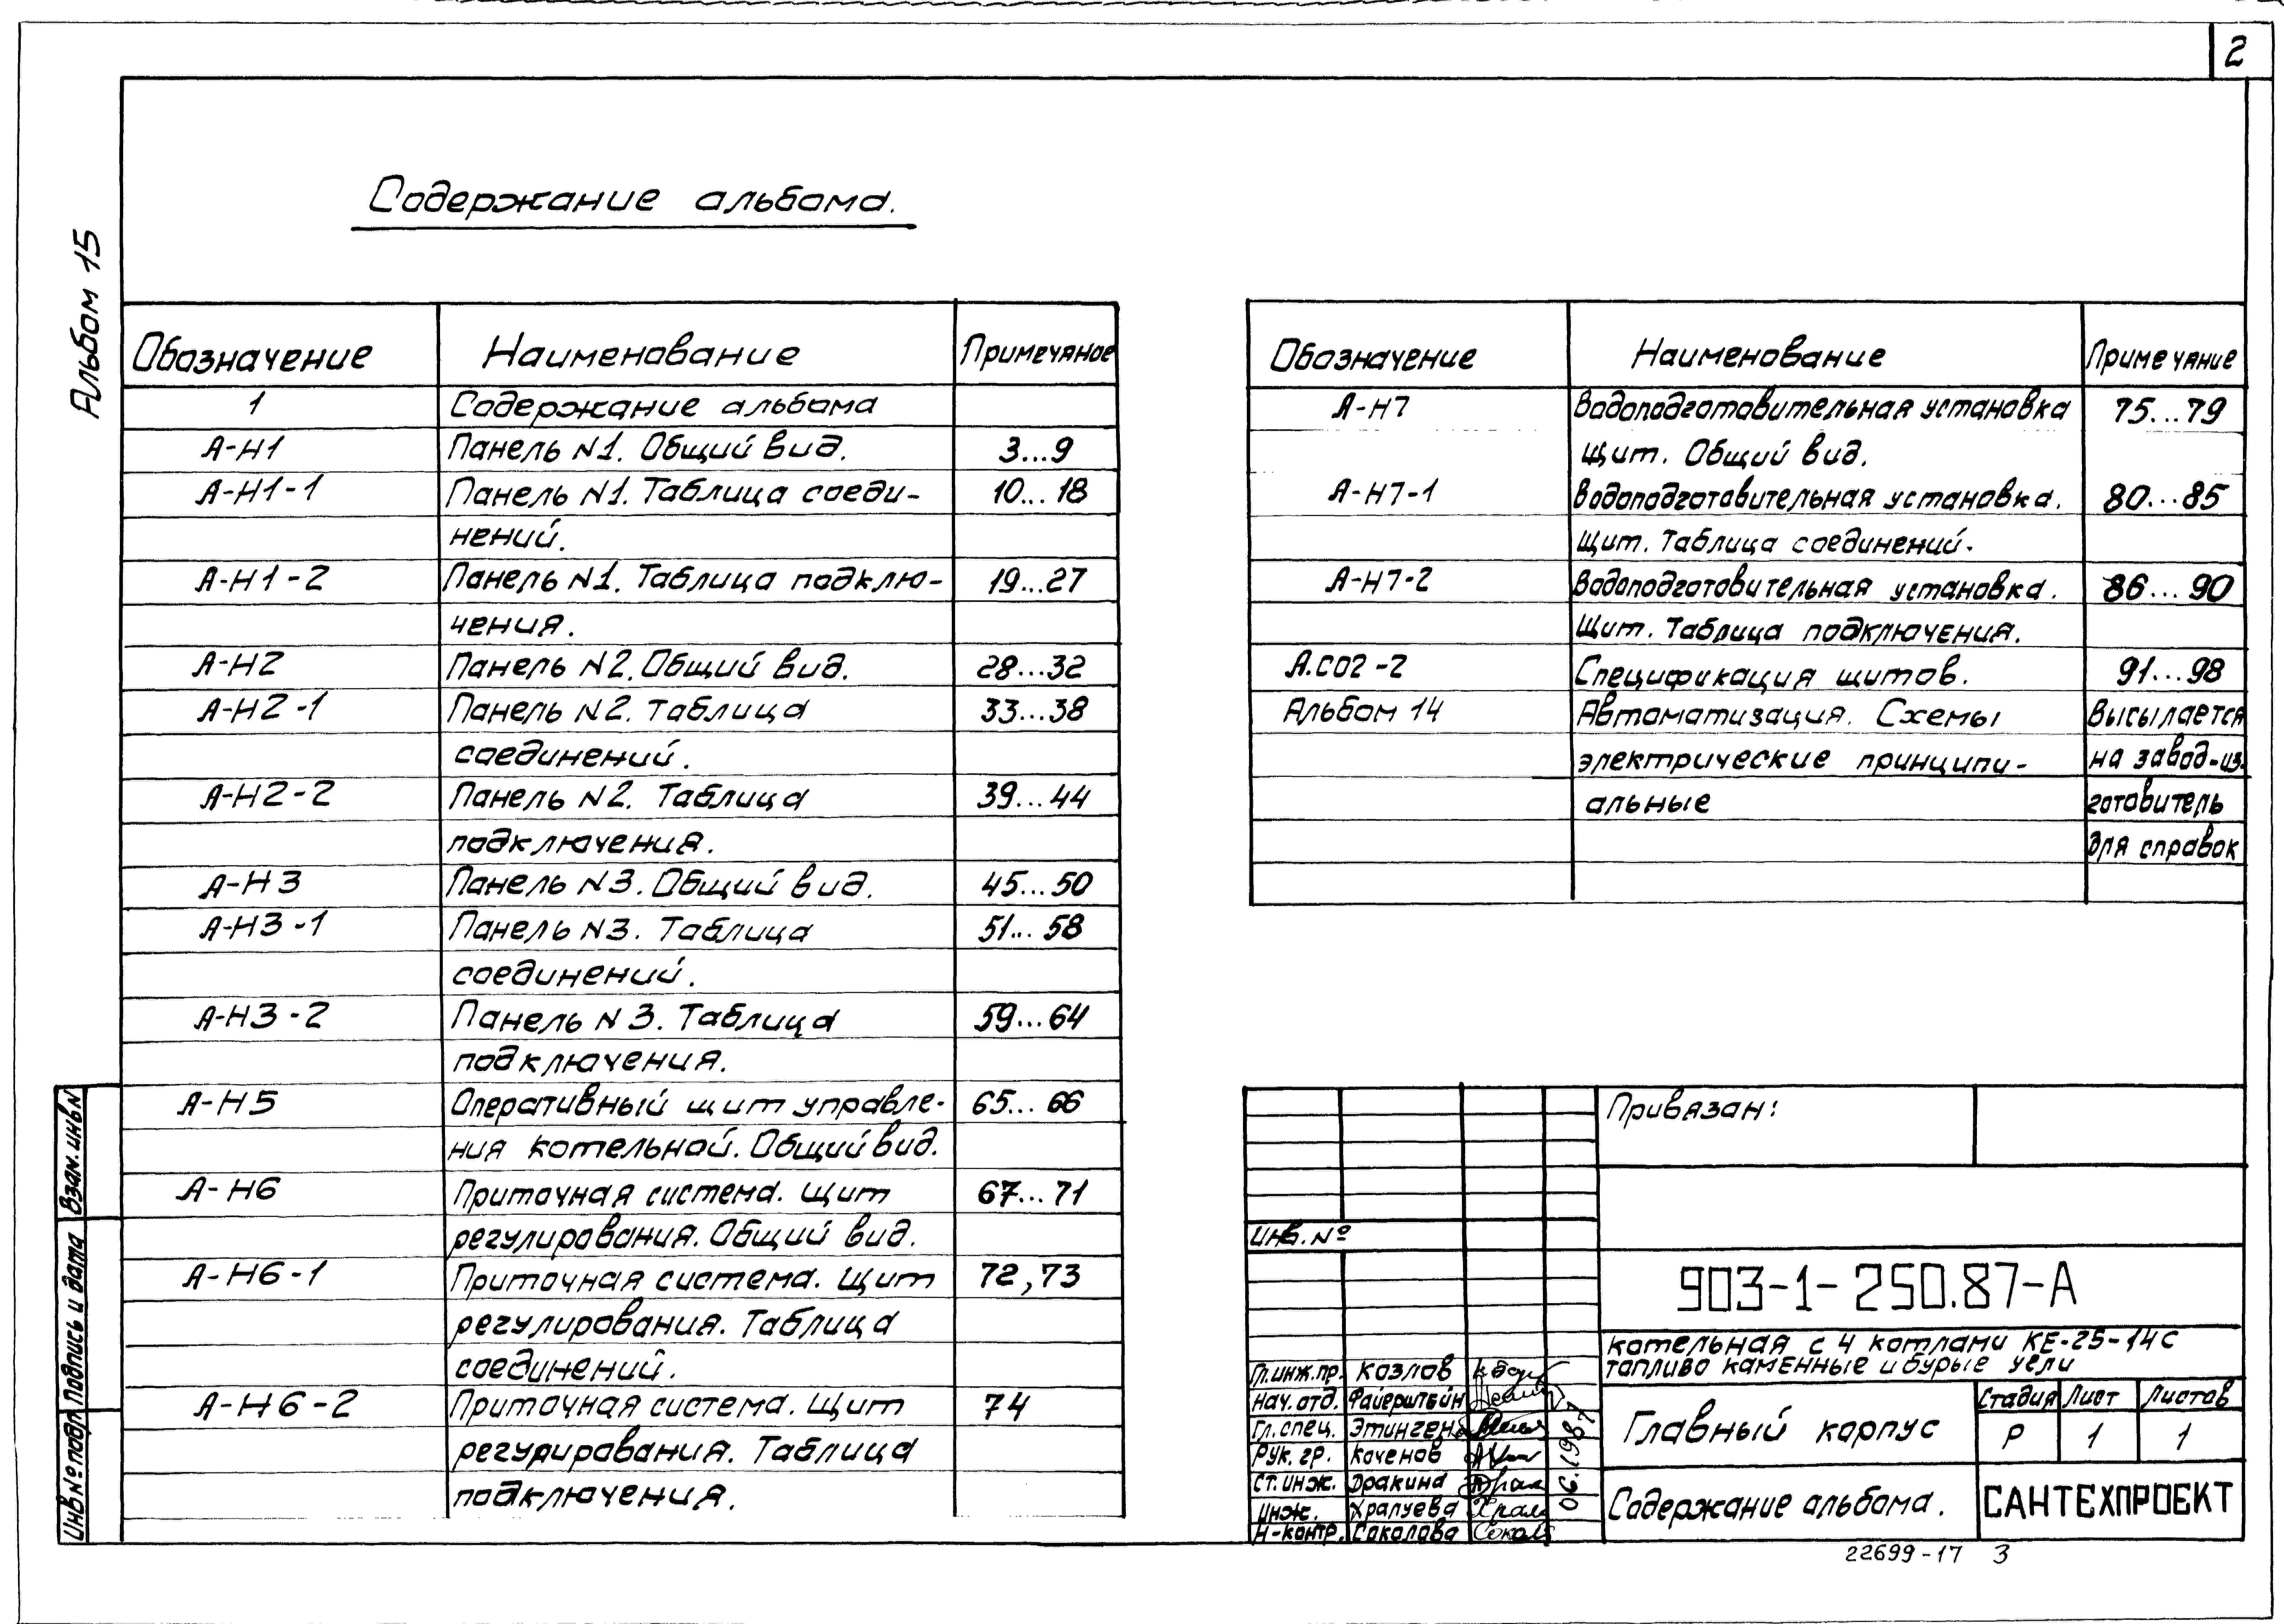 2
Альбом 15
Содержание альбома.
Обозначение Наименование Примечание
1 Содержание альбома
А-Н1 Панель N1. Общий вид. 3...9
А-Н1-1 Панель N1. Таблица соеди- 10...18
нений.
А-Н1-2 Панель N1. Таблица подклю- 19...27
чения.
А-Н2 Панель N2. Общий вид. 28...32
А-Н2-1 Панель N2. Таблица 33...38
соединений.
А-Н2-2 Панель N2. Таблица 39...44
подключения.
А-Н3 Панель N3. Общий вид. 45...50
А-Н3-1 Панель N3. Таблица 51...58
соединений.
А-Н3-2 Панель N3. Таблица 59...64
подключения.
А-Н5 Оперативный щит управле- 65...66
ния котельной. Общий вид.
А-Н6 Приточная система. Щит 67...71
регулирования. Общий вид.
А-Н6-1 Приточная система. Щит 72,73
регулирования. Таблица
соединений.
А-Н6-2 Приточная система. Щит 74
регулирования. Таблица
подключения.
Обозначение Наименование Примечание
А-Н7 Водоподготовительная установка 75...79
Щит. Общий вид.
А-Н7-1 Водоподготовительная установка. 80...85
Щит. Таблица соединений.
А-Н7-2 Водоподготовительная установка. 86...90
Щит. Таблица подключения.
А.СО2-2 Спецификация щитов. 91...98
Альбом 14 Автоматизация. Схемы Высылается
электрические принципи- на завод-из-
альные готовитель
для справок
Инв № подл Подпись и дата Взам. инв N
Привязан:
Инв. №
903-1-250.87-А
котельная с 4 котлами КЕ-25-14С
топливо каменные и бурые угли
Гл.инж.пр. Козлов
Нач. отд. Файерштейн
Гл. спец. Этинген
Рук. гр. Коченов
Ст. инж. Дракина
Инж. Храпуева
Н-контр. Соколова
06.1987
Главный корпус
Стадия Лист Листов
Р 1 1
Содержание альбома.
САНТЕХПРОЕКТ
22699-17 3